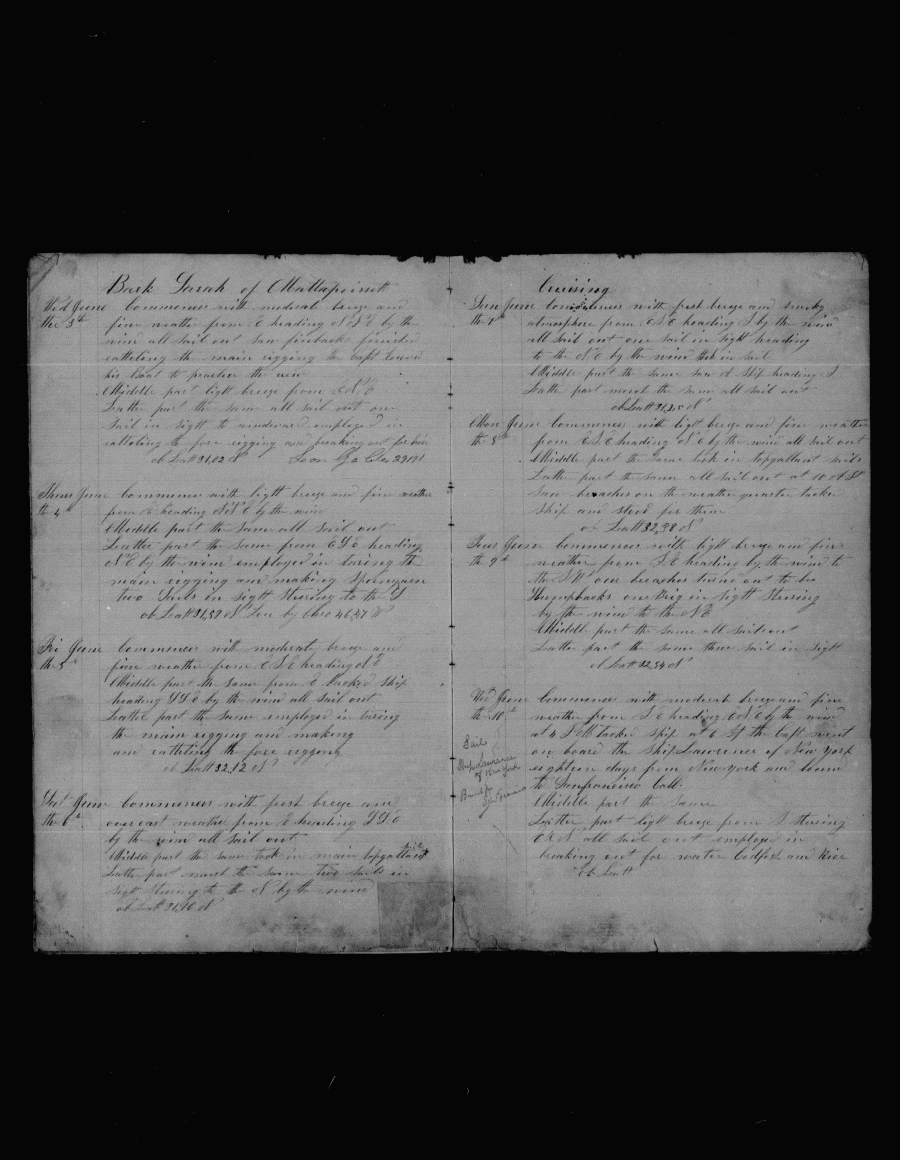 Bark Sarah of Mattapoisett
Wed June Commences with moderat breeze and
the 3d fine weather from E heading N N E by the
wind all sail out saw finback finished
ratteling the main rigging the Capt
his Boat to practice the
Middle part light breeze from E N E
Latter part the same all sail out one
Sail in sight to windward employed in
ratteling the fore rigging and breaking out for
ob Latt 31,02 N
Thurs June Commences with light breeze and fine weather
the 4th from E heading N N E by the wind
Middle part the same all sail out
Latter part the same from E S E heading
N E by the wind employed in taring the
main rigging and making Spunyarn
two Sails in sight stearing to the S
ob Latt 31,57 N Lon by Chro 46,47 W
Fri June Commences with moderat breeze and
the 5th fine weather from E S E heading N E
Middle part the same from E tacked ship
heading S S E by the wind all sail out
Latter part the same employed in taring
the main rigging and making
and ratteling the fore rigging
ob Latt 32,12 N
Sat June Commences with fresh breeze and
the 6th overcast weather from E heading S S E
by the wind all sail out
Middle part the same took in main topgallant sail
Latter part much the same two sails in
sight stearing to the N by the wind
ob Latt 31,10 N
Cruising
Sun June Commences with fresh breeze and smoky
the 7th atmosphere from E S E heading S by the wind
all sail out one sail in sight heading
to the N E by the wind took in sail
Middle part the same saw a Ship heading S
Latter part much the same all sail out
ob Latt 31,25 N
Mon June Commences with light breeze and fine weather
the 8th from E S E heading N E by the wind all sail out
Middle part the same took in topgallant sails
Latter part the same all sail out at 10 A M
saw breaches on the weather quarter tacked
Ship and stood for them
ob Latt 32,28 N
Tues June Commences with light breeze and fine
the 9th weather from S E heading by the wind to
the S W our breaches turnd out to be
Humpbacks one Brig in sight stearing
by the wind to the N E
Middle part the same all sail out
Latter part the same three sail in sight
ob Latt 32,54 N
Wed June Commences with moderat breeze and fine
the 10th weather from S E heading E N E by the wind
at 4 P M tacked ship at 6 P M the Capt went
on board the Ship Lawrence of New York
eighteen days from New York and bound
to Sanfrancisco Call
Middle part the same
Latter part light breeze from S stearing
E N all sail out employed in
breaking out for water Codfish and Rice
ob Latt
Sail
Ship Lawrence
of New York
Bound for
San Francisco